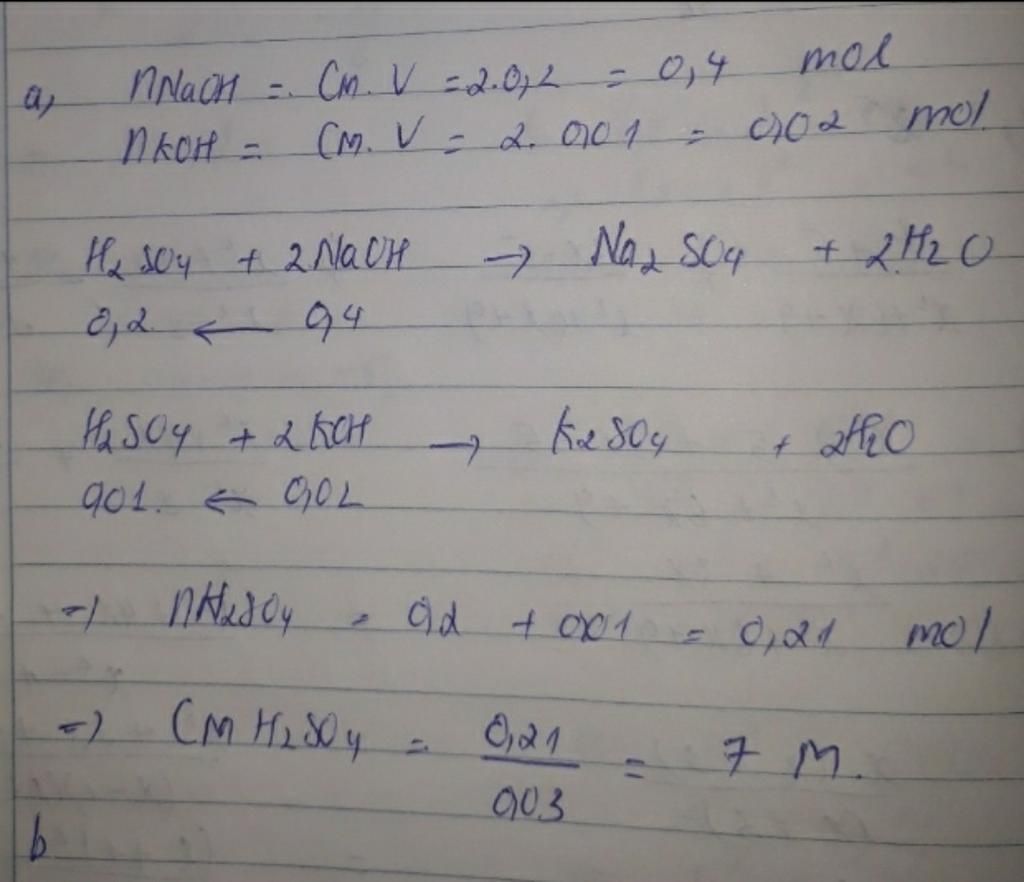 a, nNaOH = CM. V = 2.0,2 = 0,4 mol
nKOH = CM. V = 2. 0,01 = 0,02 mol
H2SO4 + 2NaOH → Na2SO4 + 2H2O
0,2 ← 0,4
H2SO4 + 2KOH → K2SO4 + 2H2O
0,01. ← 0,02
=) nH2SO4 = 0,2 + 0,01 = 0,21 mol
=) CM H2SO4 = 0,21/0,03 = 7 M.
b